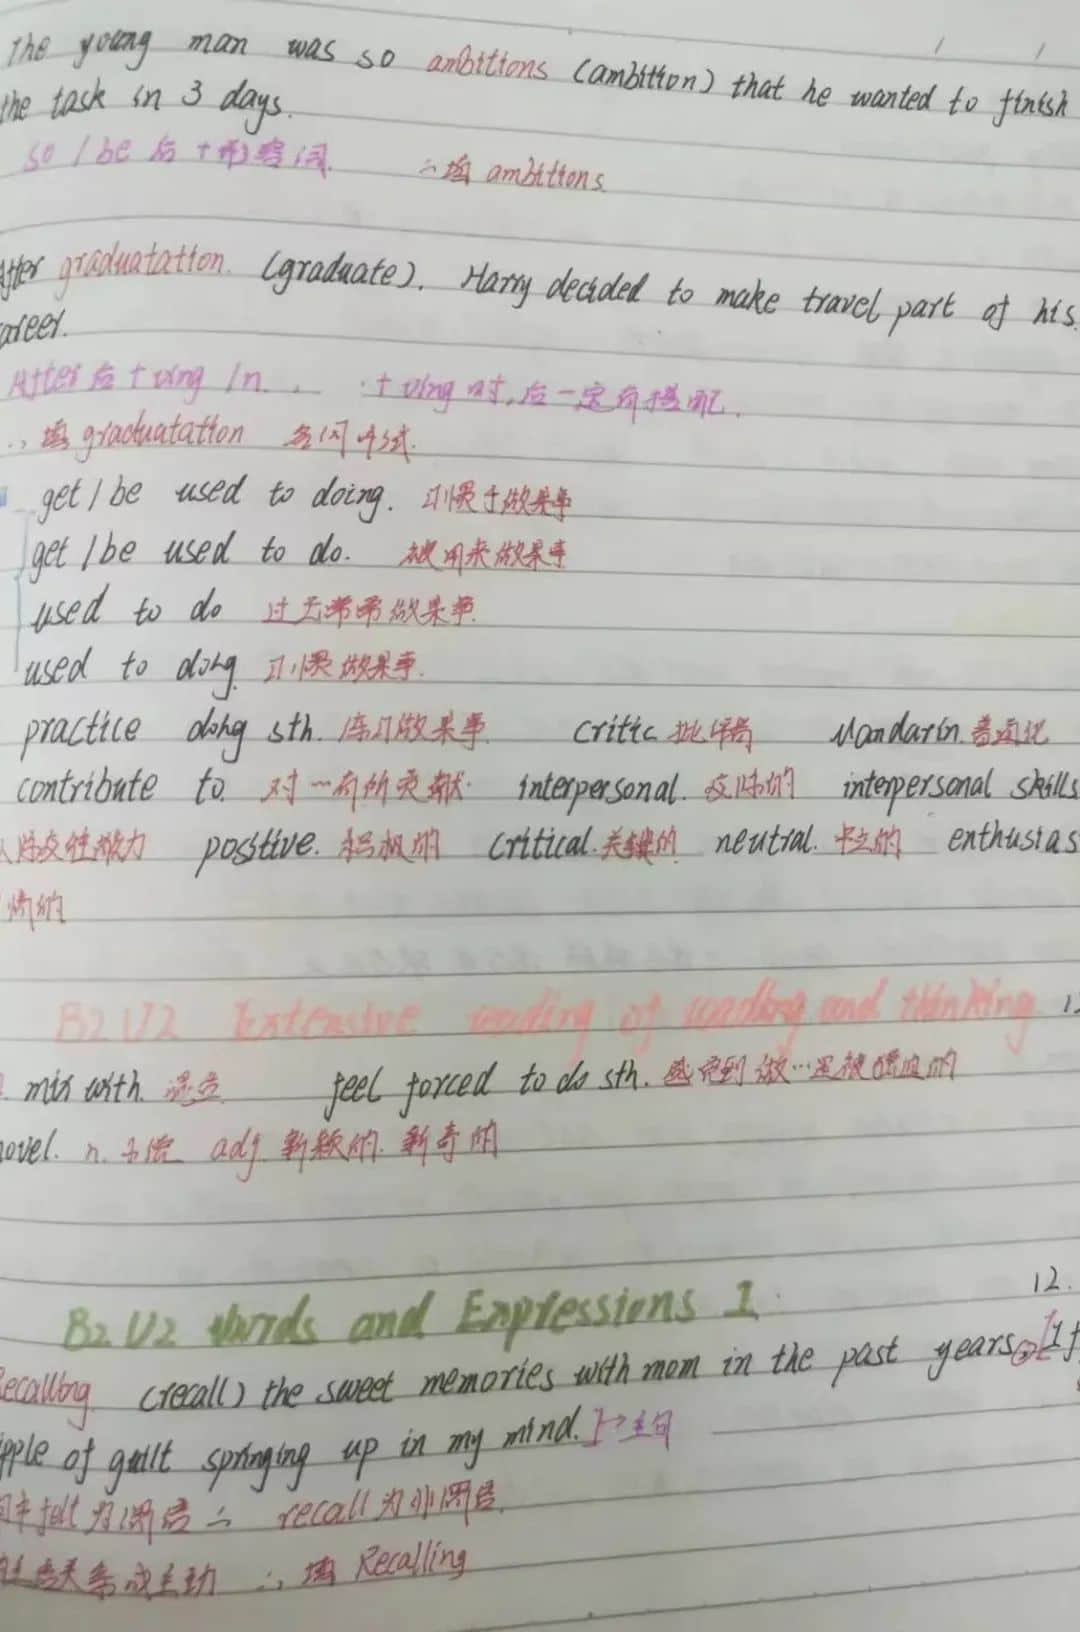 The young man was so ambitions (ambition) that he wanted to finish
the task in 3 days.
so / be 后 + 形容词. ∴填 ambitions.
After graduatation. (graduate). Harry decided to make travel part of his
career.
After后 + ving / n. + ving时,后一定有搭配.
∴ 填 graduatation 名词形式.
get / be used to doing. 习惯于做某事
get / be used to do. 被用来做某事
used to do 过去常常做某事.
used to doing. 习惯做某事.
practice doing sth. 练习做某事 critic 批评局 Mandarin. 普通话
contribute to. 对…有所贡献. interpersonal. 交际的 interpersonal skills
人际交往能力 positive. 积极的 critical. 关键的 neutral. 中立的 enthusias
情的
B2 U2 Extensive reading of reading and thinking 1
mix with. 混合 feel forced to do sth. 感觉到做…是被强迫的
novel. n. 小说 adj. 新颖的. 新奇的
12.
B2 U2 Words and Expressions 1
Recalling (recall) the sweet memories with mom in the past years, ②[I f
ipple of guilt springing up in my mind. ]→主句
felt 为谓语 ∴ recall 为非谓语.
关系或主动 ∴ 填 Recalling